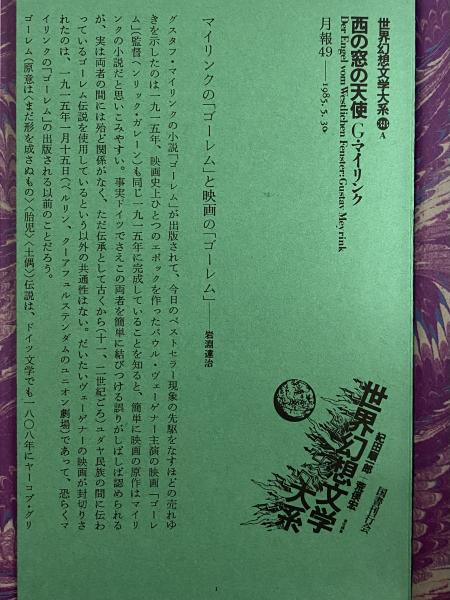 世界幻想文学大系 38 A
西の窓の天使 G・マイリンク
Der Engel vom Westlichen Fenster: Gustav Meyrink
月報49——1985.5.30.
世界幻想文学大系
紀田順一郎
荒俣宏
国書刊行会
マイリンクの「ゴーレム」と映画の「ゴーレム」——岩淵達治
グスタフ・マイリンクの小説「ゴーレム」が出版されて、今日のベストセラー現象の先駆をなすほどの売れゆ
きを示したのは一九一五年、映画史上ひとつのエポックを作ったパウル・ヴェーゲナー主演の映画「ゴーレ
ム」(監督ヘンリック・ガレーン)も同じ一九一五年に完成していることを知ると、簡単に映画の原作はマイリ
ンクの小説だと思いこみやすい。事実ドイツでさえこの両者を簡単に結びつける誤りがしばしば認められる
が、実は両者の間には殆ど関係がなく、ただ伝承として古くから(十一、二世紀ごろ)ユダヤ民族の間に伝わ
っているゴーレム伝説を使用しているという以外の共通性はない。だいたいヴェーゲナーの映画が封切りさ
れたのは、一九一五年一月十五日(ベルリン、クーアフュルステンダムのユニオン劇場)であって、恐らくマ
イリンクの「ゴーレム」の出版される以前のことだろう。
ゴーレム(原意は〈まだ形を成さぬもの〉〈胎児〉〈土偶〉)伝説は、ドイツ文学でも一八〇八年にヤーコプ・グリ
1